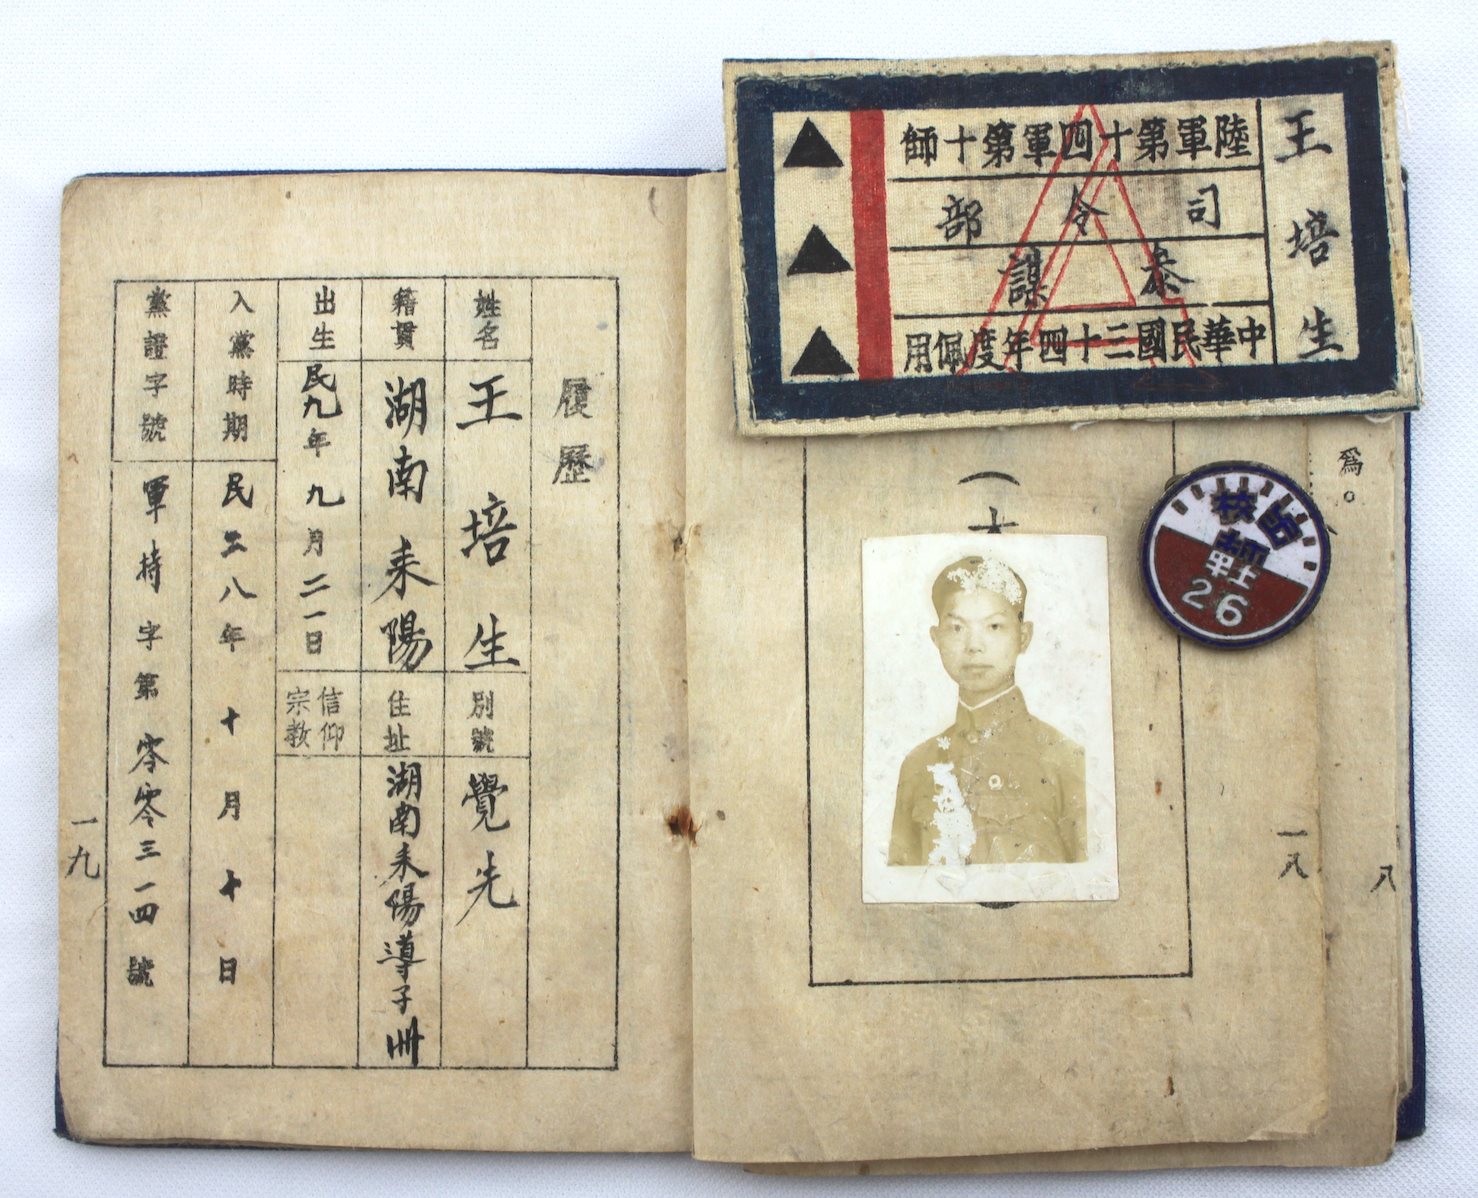 王培生
陸軍第十四軍第十師
司令部
叅謀
中華民國三十四年度佩用
爲。
八
一八
26
履歷
姓名 王培生 別號 覺先
籍貫 湖南耒陽 住址 湖南耒陽導子州
出生 民九年九月二一日 信仰宗教
入黨時期 民二八年十月十日
黨證字號 軍持字第零零三一四號
一九